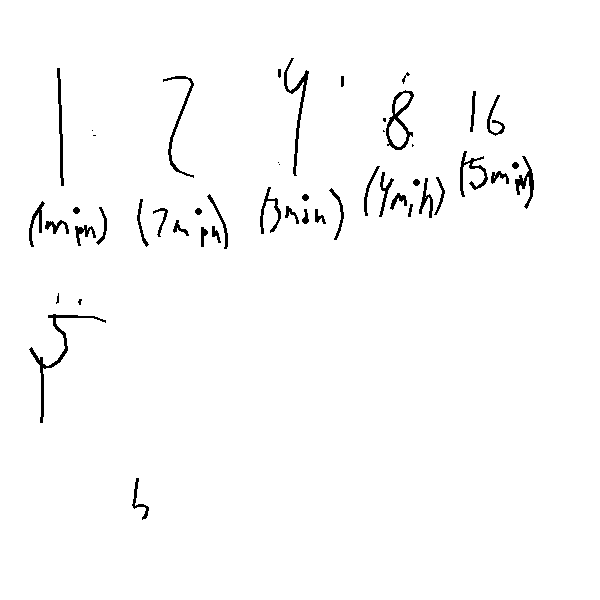 1 2 4 8 16
(1min) (2min) (3min) (4min) (5min)
5